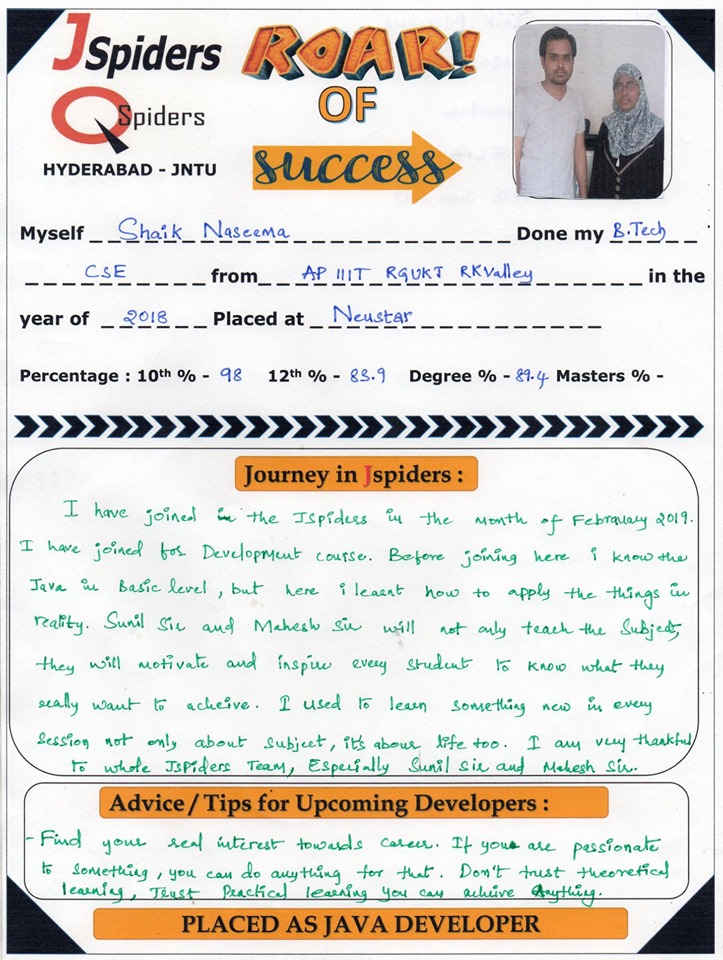 JSpiders
ROAR!
OF
success
QSpiders
HYDERABAD - JNTU
Myself Shaik Naseema Done my B.Tech
CSE from AP IIIT RGUKT RKValley in the
year of 2018 Placed at Neustar
Percentage : 10th % - 98 12th % - 83.9 Degree % - 89.4 Masters % -
Journey in Jspiders :
I have joined in the JSpiders in the month of Febrauary 2019.
I have joined for Development course. Before joining here i know the
Java in Basic level, but here i learnt how to apply the things in
reality. Sunil Sir and Mahesh Sir will not only teach the Subject,
they will motivate and inspire every student to know what they
really want to acheive. I used to learn something new in every
session not only about subject, it's about life too. I am very thankful
to whole JSpiders Team, Especially Sunil Sir and Mahesh Sir.
Advice / Tips for Upcoming Developers :
- Find your real interest towards career. If you are passionate
to something, you can do anything for that. Don't trust theoretical
learning, Trust Practical learning you can acheive Anything.
PLACED AS JAVA DEVELOPER